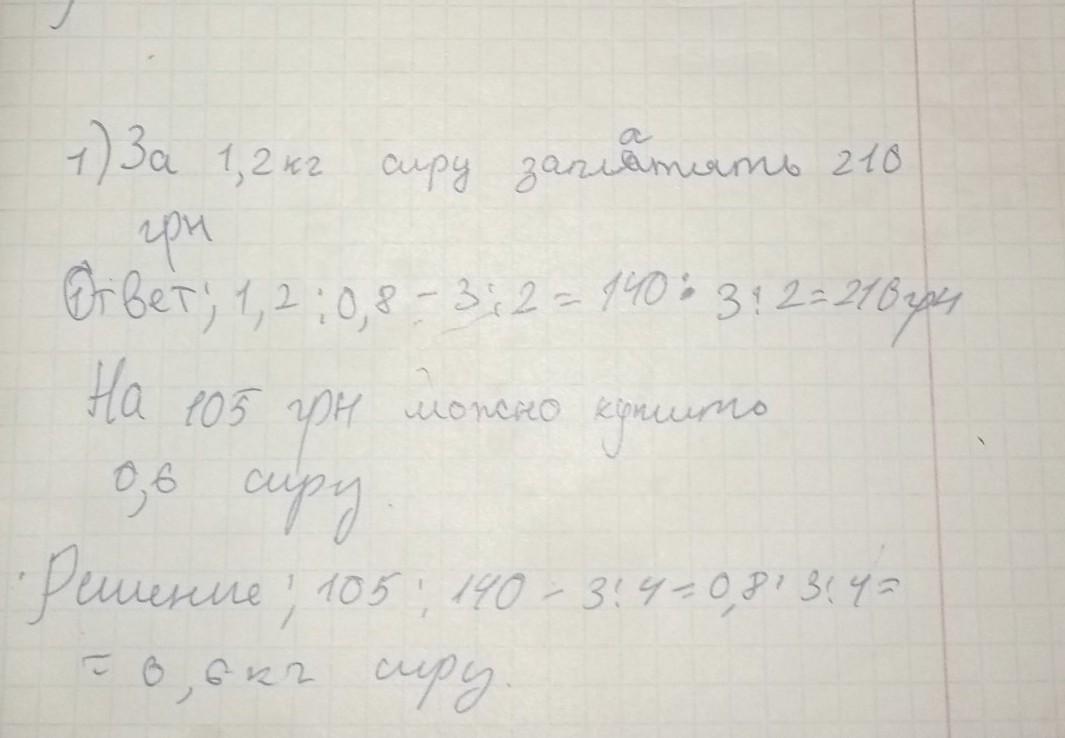 1) За 1,2 кг сиру заплатять 210
грн
Ответ; 1,2 : 0,8 = 3 : 2 = 140 · 3 : 2 = 210 грн
На 105 грн можно купить
0,6 сиру.
Решение; 105 : 140 = 3 : 4 = 0,8 · 3 : 4 =
= 0,6 кг сиру.